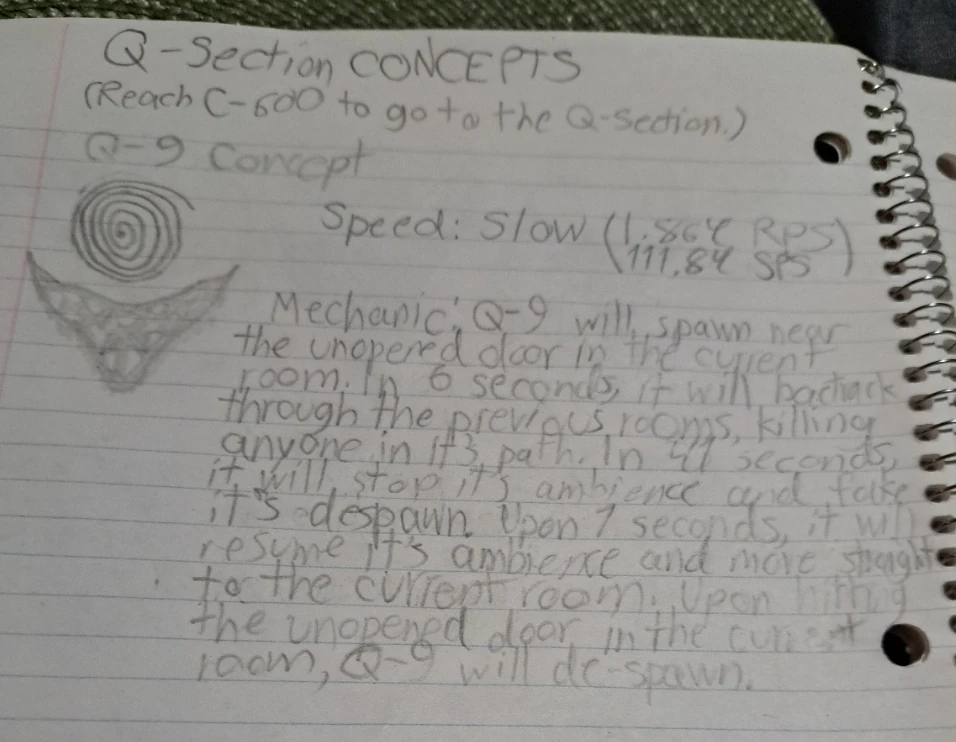 Q-Section CONCEPTS
(Reach C-600 to go to the Q-Section.)
Q-9 Concept
Speed: Slow (1.864 RPS)
111.84 SPS
Mechanic: Q-9 will spawn near
the unopened door in the current
room. In 6 seconds, it will backtrack
through the previous rooms, killing
anyone in it's path. In 41 seconds,
it will stop it's ambience and fake
it's despawn. Upon 7 seconds, it will
resume it's ambience and move straight
to the current room. Upon hitting
the unopened door in the current
room, Q-9 will de-spawn.